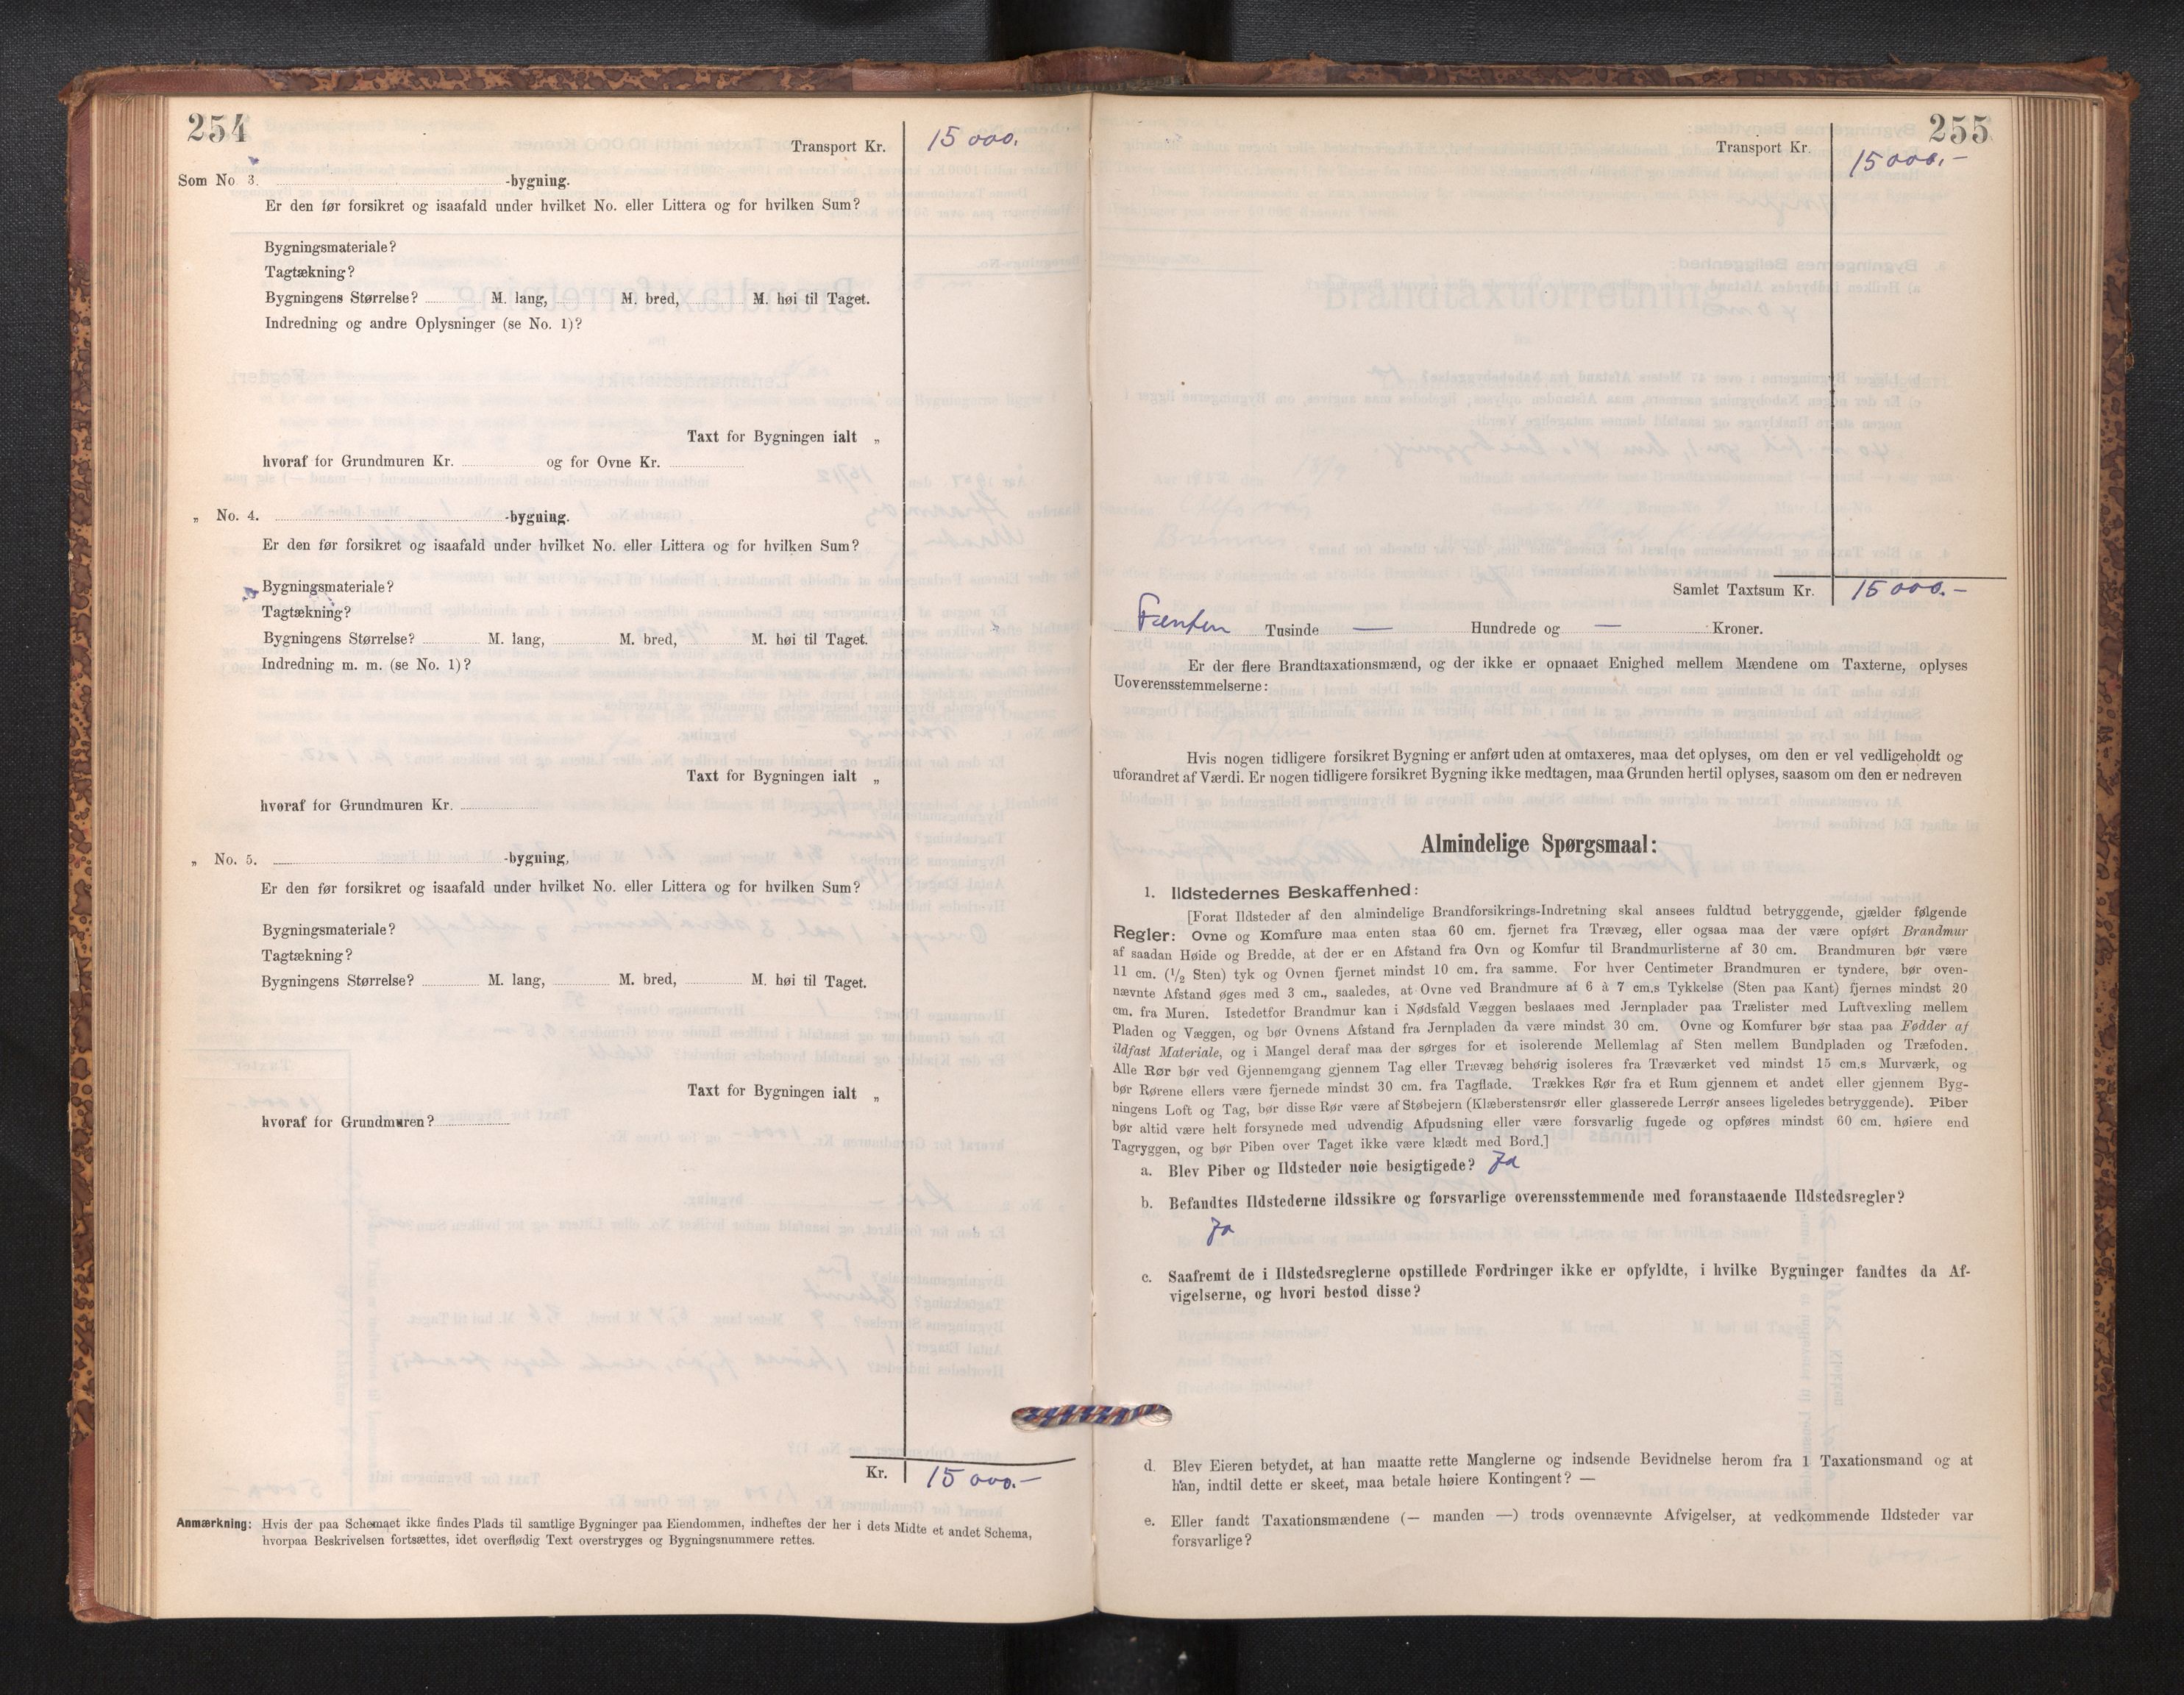 254
Transport Kr. 15 000.
Som No 3. -bygning.
Er den før forsikret og isaafald under hvilket No. eller Littera og for hvilken Sum?
Bygningsmateriale?
Tagtækning?
Bygningens Størrelse? M. lang, M. bred, M. høi til Taget.
Indredning og andre Oplysninger (se No. 1)?
Taxt for Bygningen ialt „
hvoraf for Grundmuren Kr. og for Ovne Kr.
„ No. 4. -bygning.
Er den før forsikret og isaafald under hvilket No. eller Littera og for hvilken Sum?
Bygningsmateriale?
Tagtækning?
Bygningens Størrelse? M. lang, M. bred, M. høi til Taget.
Indredning m. m. (se No. 1)?
Taxt for Bygningen ialt „
hvoraf for Grundmuren Kr.
„ No. 5. -bygning,
Er den før forsikret og isaafald under hvilket No. eller Littera og for hvilken Sum?
Bygningsmateriale?
Tagtækning?
Bygningens Størrelse? M. lang, M. bred, M. høi til Taget.
Taxt for Bygningen ialt „
hvoraf for Grundmuren?
Kr. 15 000.-
Anmærkning: Hvis der paa Schemaet ikke findes Plads til samtlige Bygninger paa Eiendommen, indheftes der her i dets Midte et andet Schema,
hvorpaa Beskrivelsen fortsættes, idet overflødig Text overstryges og Bygningsnummere rettes.
255
Transport Kr. 15 000.-
Samlet Taxtsum Kr. 15 000.-
Femten Tusinde — Hundrede og — Kroner.
Er der flere Brandtaxationsmænd, og der ikke er opnaaet Enighed mellem Mændene om Taxterne, oplyses
Uoverensstemmelserne:
Hvis nogen tidligere forsikret Bygning er anført uden at omtaxeres, maa det oplyses, om den er vel vedligeholdt og
uforandret af Værdi. Er nogen tidligere forsikret Bygning ikke medtagen, maa Grunden hertil oplyses, saasom om den er nedreven
Almindelige Spørgsmaal:
1. Ildstedernes Beskaffenhed:
[Forat Ildsteder af den almindelige Brandforsikrings-Indretning skal ansees fuldtud betryggende, gjælder følgende
Regler: Ovne og Komfure maa enten staa 60 cm. fjernet fra Trævæg, eller ogsaa maa der være opført Brandmur
af saadan Høide og Bredde, at der er en Afstand fra Ovn og Komfur til Brandmurlisterne af 30 cm. Brandmuren bør være
11 cm. (1/2 Sten) tyk og Ovnen fjernet mindst 10 cm. fra samme. For hver Centimeter Brandmuren er tyndere, bør oven-
nævnte Afstand øges med 3 cm., saaledes, at Ovne ved Brandmure af 6 à 7 cm.s Tykkelse (Sten paa Kant) fjernes mindst 20
cm. fra Muren. Istedetfor Brandmur kan i Nødsfald Væggen beslaaes med Jernplader paa Trælister med Luftvexling mellem
Pladen og Væggen, og bør Ovnens Afstand fra Jernpladen da være mindst 30 cm. Ovne og Komfurer bør staa paa Fødder af
ildfast Materiale, og i Mangel deraf maa der sørges for et isolerende Mellemlag af Sten mellem Bundpladen og Træfoden.
Alle Rør bør ved Gjennemgang gjennem Tag eller Trævæg behørig isoleres fra Træværket ved mindst 15 cm.s Murværk, og
bør Rørene ellers være fjernede mindst 30 cm. fra Tagflade. Trækkes Rør fra et Rum gjennem et andet eller gjennem Byg-
ningens Loft og Tag, bør disse Rør være af Støbejern (Klæberstensrør eller glasserede Lerrør ansees ligeledes betryggende). Piber
bør altid være helt forsynede med udvendig Afpudsning eller være forsvarlig fugede og opføres mindst 60 cm. høiere end
Tagryggen, og bør Piben over Taget ikke være klædt med Bord.]
a. Blev Piber og Ildsteder nøie besigtigede? Ja
b. Befandtes Ildstederne ildssikre og forsvarlige overensstemmende med foranstaaende Ildstedsregler?
Ja
c. Saafremt de i Ildstedsreglerne opstillede Fordringer ikke er opfyldte, i hvilke Bygninger fandtes da Af-
vigelserne, og hvori bestod disse?
d. Blev Eieren betydet, at han maatte rette Manglerne og indsende Bevidnelse herom fra 1 Taxationsmand og at
han, indtil dette er skeet, maa betale høiere Kontingent? —
e. Eller fandt Taxationsmændene (— manden —) trods ovennævnte Afvigelser, at vedkommende Ildsteder var
forsvarlige?